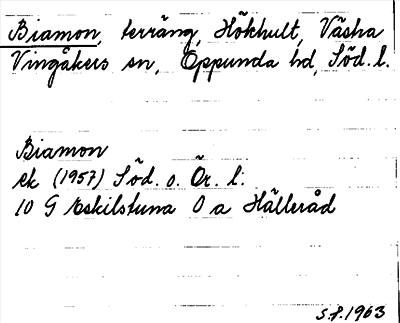 Biamon, terräng, Hökhult, Västra
Vingåkers sn, Oppunda hd, Söd. l.
Biamon
ek (1957) Söd. o. Ör. l.
10 G Eskilstuna O a Hälleråd
S.P. 1963